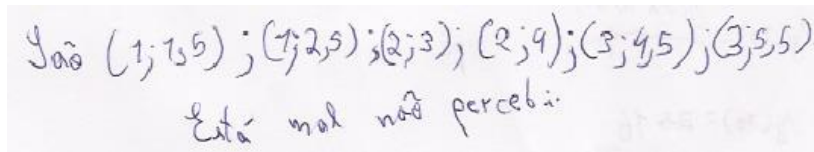 São (1;1,5) ; (1;2,5) ; (2;3) ; (2;4) ; (3;4,5) ; (3;5,5)
Está mal não percebi.